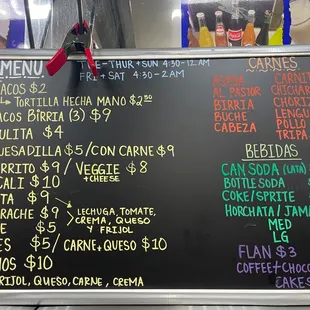 MENU
TUE-THUR+SUN 4:30-12AM
FRI+SAT 4:30-2AM
TACOS $2
TORTILLA HECHA MANO $2.50
TACOS BIRRIA (3) $9
MULITA $4
QUESADILLA $5/CON CARNE $9
BURRITO $9 / VEGGIE $8
+CHEESE
CALI $10
TORTA $9
HUARACHE $9
LECHUGA, TOMATE,
CREMA, QUESO
Y FRIJOL
$5
$5/ CARNE, QUESO $10
NACHOS $10
FRIJOL, QUESO, CARNE, CREMA
CARNES
ASADA
AL PASTOR
BIRRIA
BUCHE
CABEZA
CARNIT
CHICHAR
CHORIZ
LENGU
POLLO
TRIPA
BEBIDAS
CAN SODA (LATA)
BOTTLE SODA
COKE/SPRITE
HORCHATA/JAMA
MED
LG
FLAN $3
COFFEE+CHOCO
CAKES